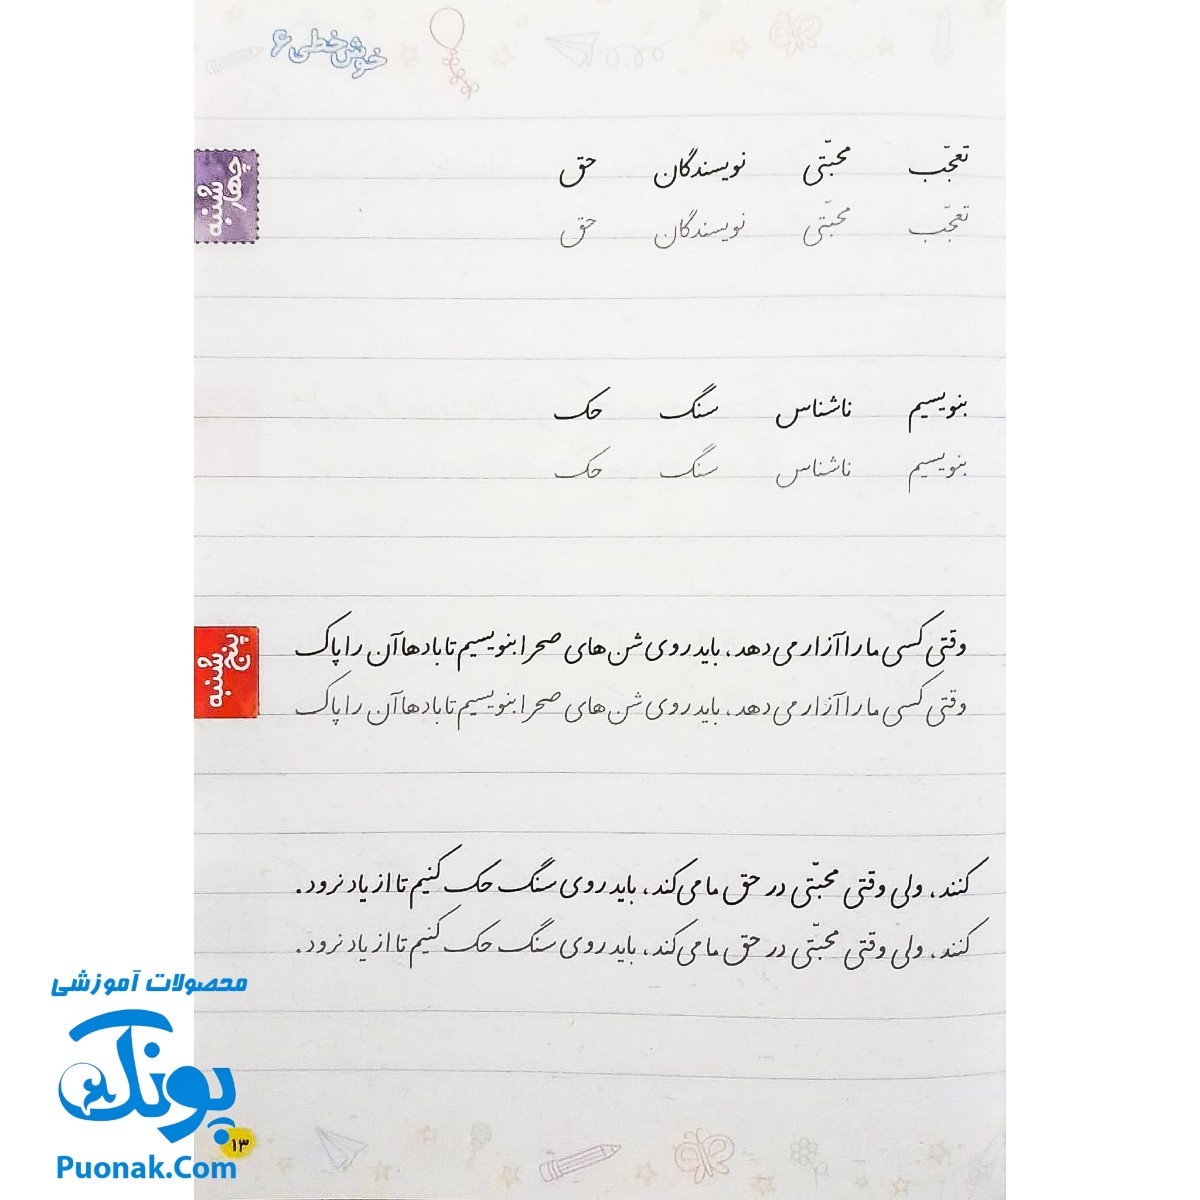 خوش‌خطی ۶
چهارشنبه
تعجّب محبّتی نویسندگان حق
تعجّب محبّتی نویسندگان حق
بنویسیم ناشناس سنگ حک
بنویسیم ناشناس سنگ حک
پنج‌شنبه
وقتی کسی ما را آزار می‌دهد، باید روی شن‌های صحرا بنویسیم تا بادها آن را پاک
وقتی کسی ما را آزار می‌دهد، باید روی شن‌های صحرا بنویسیم تا بادها آن را پاک
کنند، ولی وقتی محبّتی در حق ما می‌کند، باید روی سنگ حک کنیم تا از یاد نرود.
کنند، ولی وقتی محبّتی در حق ما می‌کند، باید روی سنگ حک کنیم تا از یاد نرود.
محصولات آموزشی
پونک
Puonak.Com
۱۳